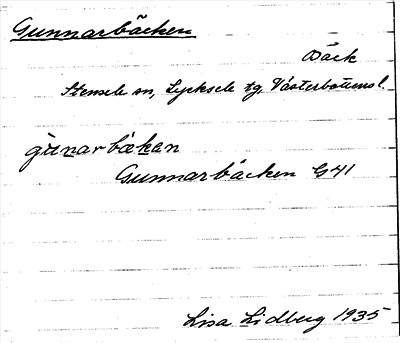 Gunnarbäcken
Bäck
Stensele sn, Lycksele tg, Västerbottens l.
gu̱nar bæḵan
Gunnarbäcken G41
Lisa Lidberg 1935